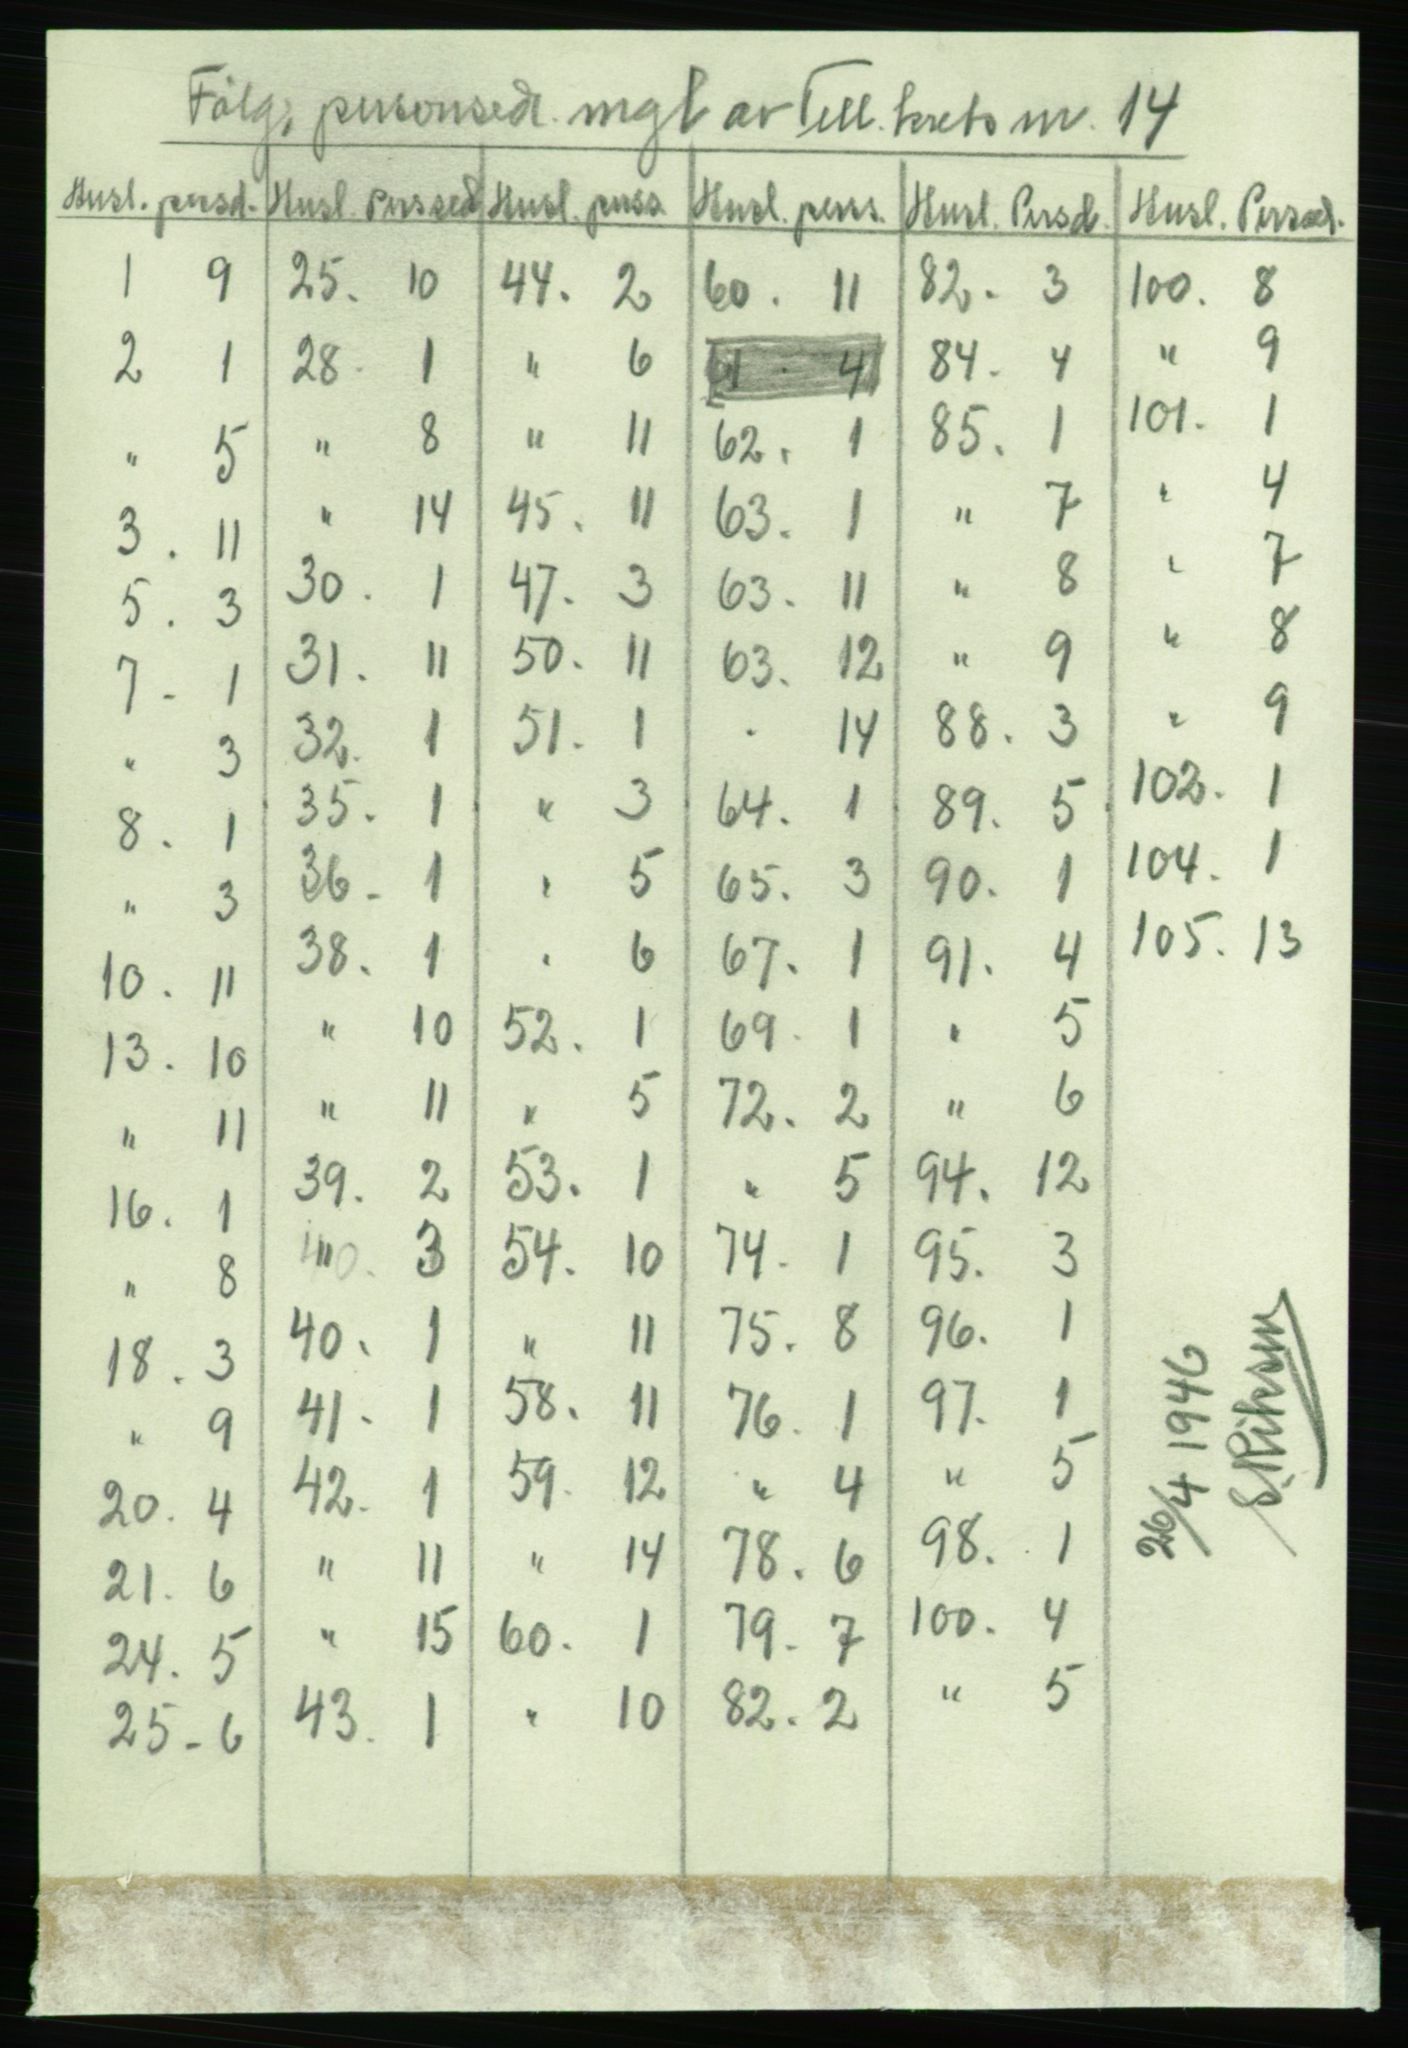 Følg. personsed. mgl av Tell. krets nr. 14
Husl. persd. Husl. Perssed Husl. perss. Husl. pers. Husl. Persd. Husl. Perssed.
1 9
2 1
" 5
3. 11
5. 3
7 - 1
" 3
8. 1
" 3
10. 11
13. 10
" 11
16. 1
" 8
18. 3
" 9
20. 4
21. 6
24. 5
25 - 6
25. 10
28. 1
" 8
" 14
30. 1
31. 11
32. 1
35. 1
36 - 1
38. 1
" 10
" 11
39. 2
" 3
40. 1
41. 1
42. 1
" 11
" 15
43. 1
44. 2
" 6
" 11
45. 11
47. 3
50. 11
51. 1
" 3
" 5
" 6
52. 1
" 5
53. 1
54. 10
" 11
58. 11
59. 12
" 14
60. 1
" 10
60. 11
61. 4
62. 1
63. 1
63. 11
63. 12
" 14
64. 1
65. 3
67. 1
69. 1
72. 2
" 5
74. 1
75. 8
76. 1
" 4
78. 6
79. 7
82. 2
82. 3
84. 4
85. 1
" 7
" 8
" 9
88. 3
89. 5
90. 1
91. 4
" 5
" 6
94. 12
95. 3
96. 1
97. 1
" 5
98. 1
100. 4
" 5
100. 8
" 9
101. 1
" 4
" 7
" 8
" 9
102. 1
104. 1
105. 13
26/4 1946